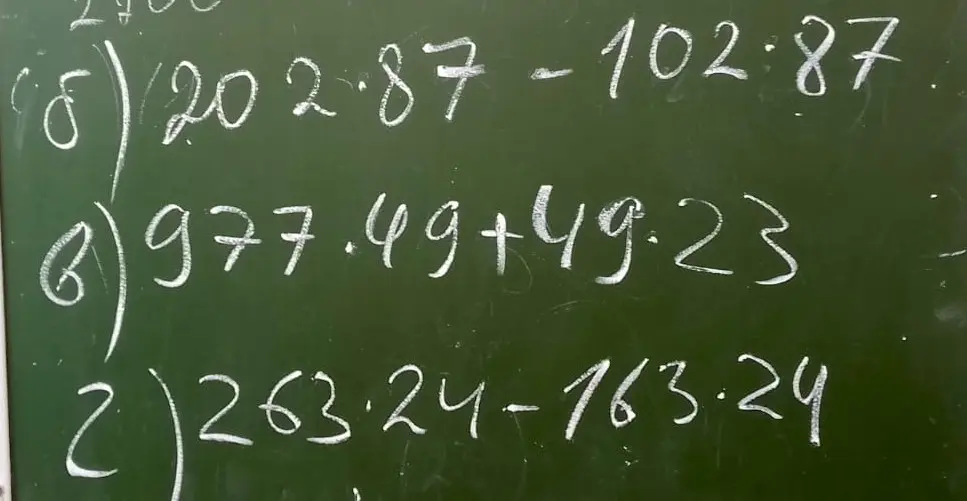 б) 202·87 - 102·87
в) 977·49+49·23
г) 263·24 - 163·24